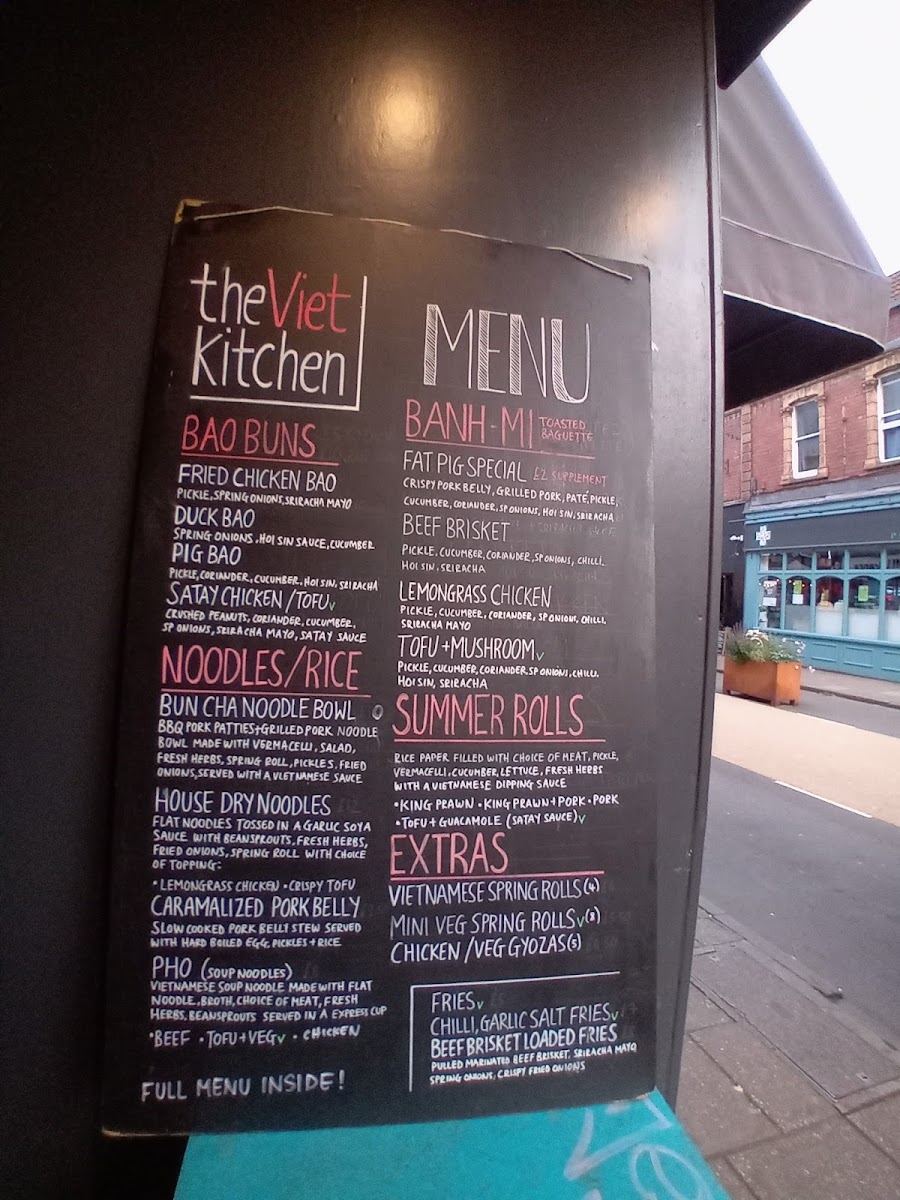 the Viet
Kitchen
MENU
BAO BUNS
FRIED CHICKEN BAO
PICKLE, SPRING ONIONS, SRIRACHA MAYO
DUCK BAO
SPRING ONIONS, HOI SIN SAUCE, CUCUMBER
PIG BAO
PICKLE, CORIANDER, CUCUMBER, HOI SIN, SRIRACHA
SATAY CHICKEN / TOFU V
CRUSHED PEANUTS, CORIANDER, CUCUMBER,
SP ONIONS, SRIRACHA MAYO, SATAY SAUCE
NOODLES/RICE
BUN CHA NOODLE BOWL
BBQ PORK PATTIES + GRILLED PORK NOODLE
BOWL MADE WITH VERMACELLI, SALAD,
FRESH HERBS, SPRING ROLL, PICKLES, FRIED
ONIONS, SERVED WITH A VIETNAMESE SAUCE
HOUSE DRY NOODLES
FLAT NOODLES TOSSED IN A GARLIC SOYA
SAUCE WITH BEANSPROUTS, FRESH HERBS,
FRIED ONIONS, SPRING ROLL WITH CHOICE
OF TOPPING:
• LEMONGRASS CHICKEN • CRISPY TOFU
CARAMALIZED PORK BELLY
SLOW COOKED PORK BELLY STEW SERVED
WITH HARD BOILED EGG, PICKLES + RICE
PHO (SOUP NOODLES)
VIETNAMESE SOUP NOODLE MADE WITH FLAT
NOODLE, BROTH, CHOICE OF MEAT, FRESH
HERBS, BEANSPROUTS SERVED IN A EXPRESS CUP
• BEEF • TOFU + VEG V • CHICKEN
FULL MENU INSIDE!
BANH-MI TOASTED
BAGUETTE
FAT PIG SPECIAL £2 SUPPLEMENT
CRISPY PORK BELLY, GRILLED PORK, PATE, PICKLE,
CUCUMBER, CORIANDER, SP ONIONS, HOI SIN, SRIRACHA
BEEF BRISKET
PICKLE, CUCUMBER, CORIANDER, SP ONIONS, CHILLI,
HOI SIN, SRIRACHA
LEMONGRASS CHICKEN
PICKLE, CUCUMBER, CORIANDER, SP ONIONS, CHILLI,
SRIRACHA MAYO
TOFU + MUSHROOM V
PICKLE, CUCUMBER, CORIANDER, SP ONIONS, CHILLI,
HOI SIN, SRIRACHA
SUMMER ROLLS
RICE PAPER FILLED WITH CHOICE OF MEAT, PICKLE,
VERMACELLI, CUCUMBER, LETTUCE, FRESH HERBS
WITH A VIETNAMESE DIPPING SAUCE
• KING PRAWN • KING PRAWN + PORK • PORK
• TOFU + GUACAMOLE (SATAY SAUCE) V
EXTRAS
VIETNAMESE SPRING ROLLS (4)
MINI VEG SPRING ROLLS V (8)
CHICKEN / VEG GYOZAS (5)
FRIES V
CHILLI, GARLIC SALT FRIES V
BEEF BRISKET LOADED FRIES
PULLED MARINATED BEEF BRISKET, SRIRACHA MAYO
SPRING ONIONS, CRISPY FRIED ONIONS